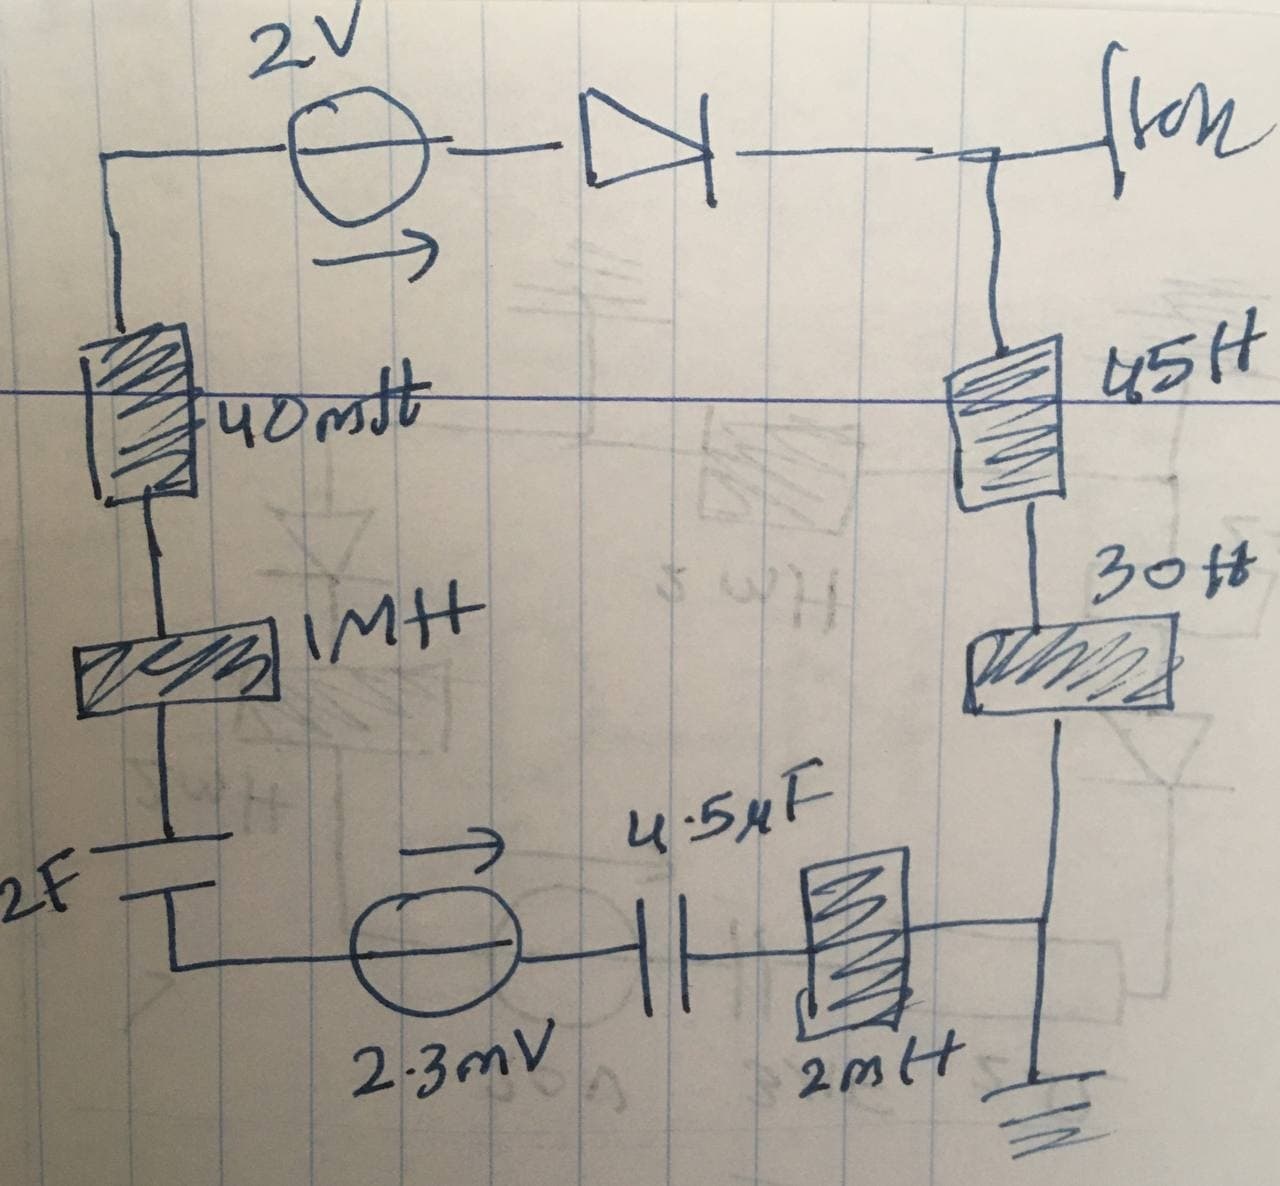 2V
40mH
45H
1MH
30H
2F
4.5µF
2.3mV
2mH